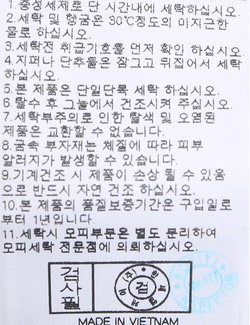 1. 중성세제로 단 시간내에 세탁하십시오.
2. 세탁 및 헹굼은 30℃정도의 미지근한
물로 하십시오.
3. 세탁전 취급기호를 먼저 확인 하십시오.
4. 지퍼나 단추들은 잠그고 뒤집어서 세탁
하십시오.
5. 본 제품은 단일단독 세탁 하십시오.
6. 탈수 후 그늘에서 건조시켜 주십시오.
7. 세탁부주의로 인한 탈색 및 오염된
제품은 교환할 수 없습니다.
8. 금속 부자재는 체질에 따라 피부
알러지가 발생할 수 있습니다.
9. 기계건조 시 제품이 손상 될 수 있음
으로 반드시 자연 건조 하십시오.
10. 본 제품의 품질보증기간은 구입일로
부터 1년입니다.
11. 세탁시 모피부문은 별도 분리하여
모피세탁 전문점에 의뢰하십시오.
검사필
검
MADE IN VIETNAM